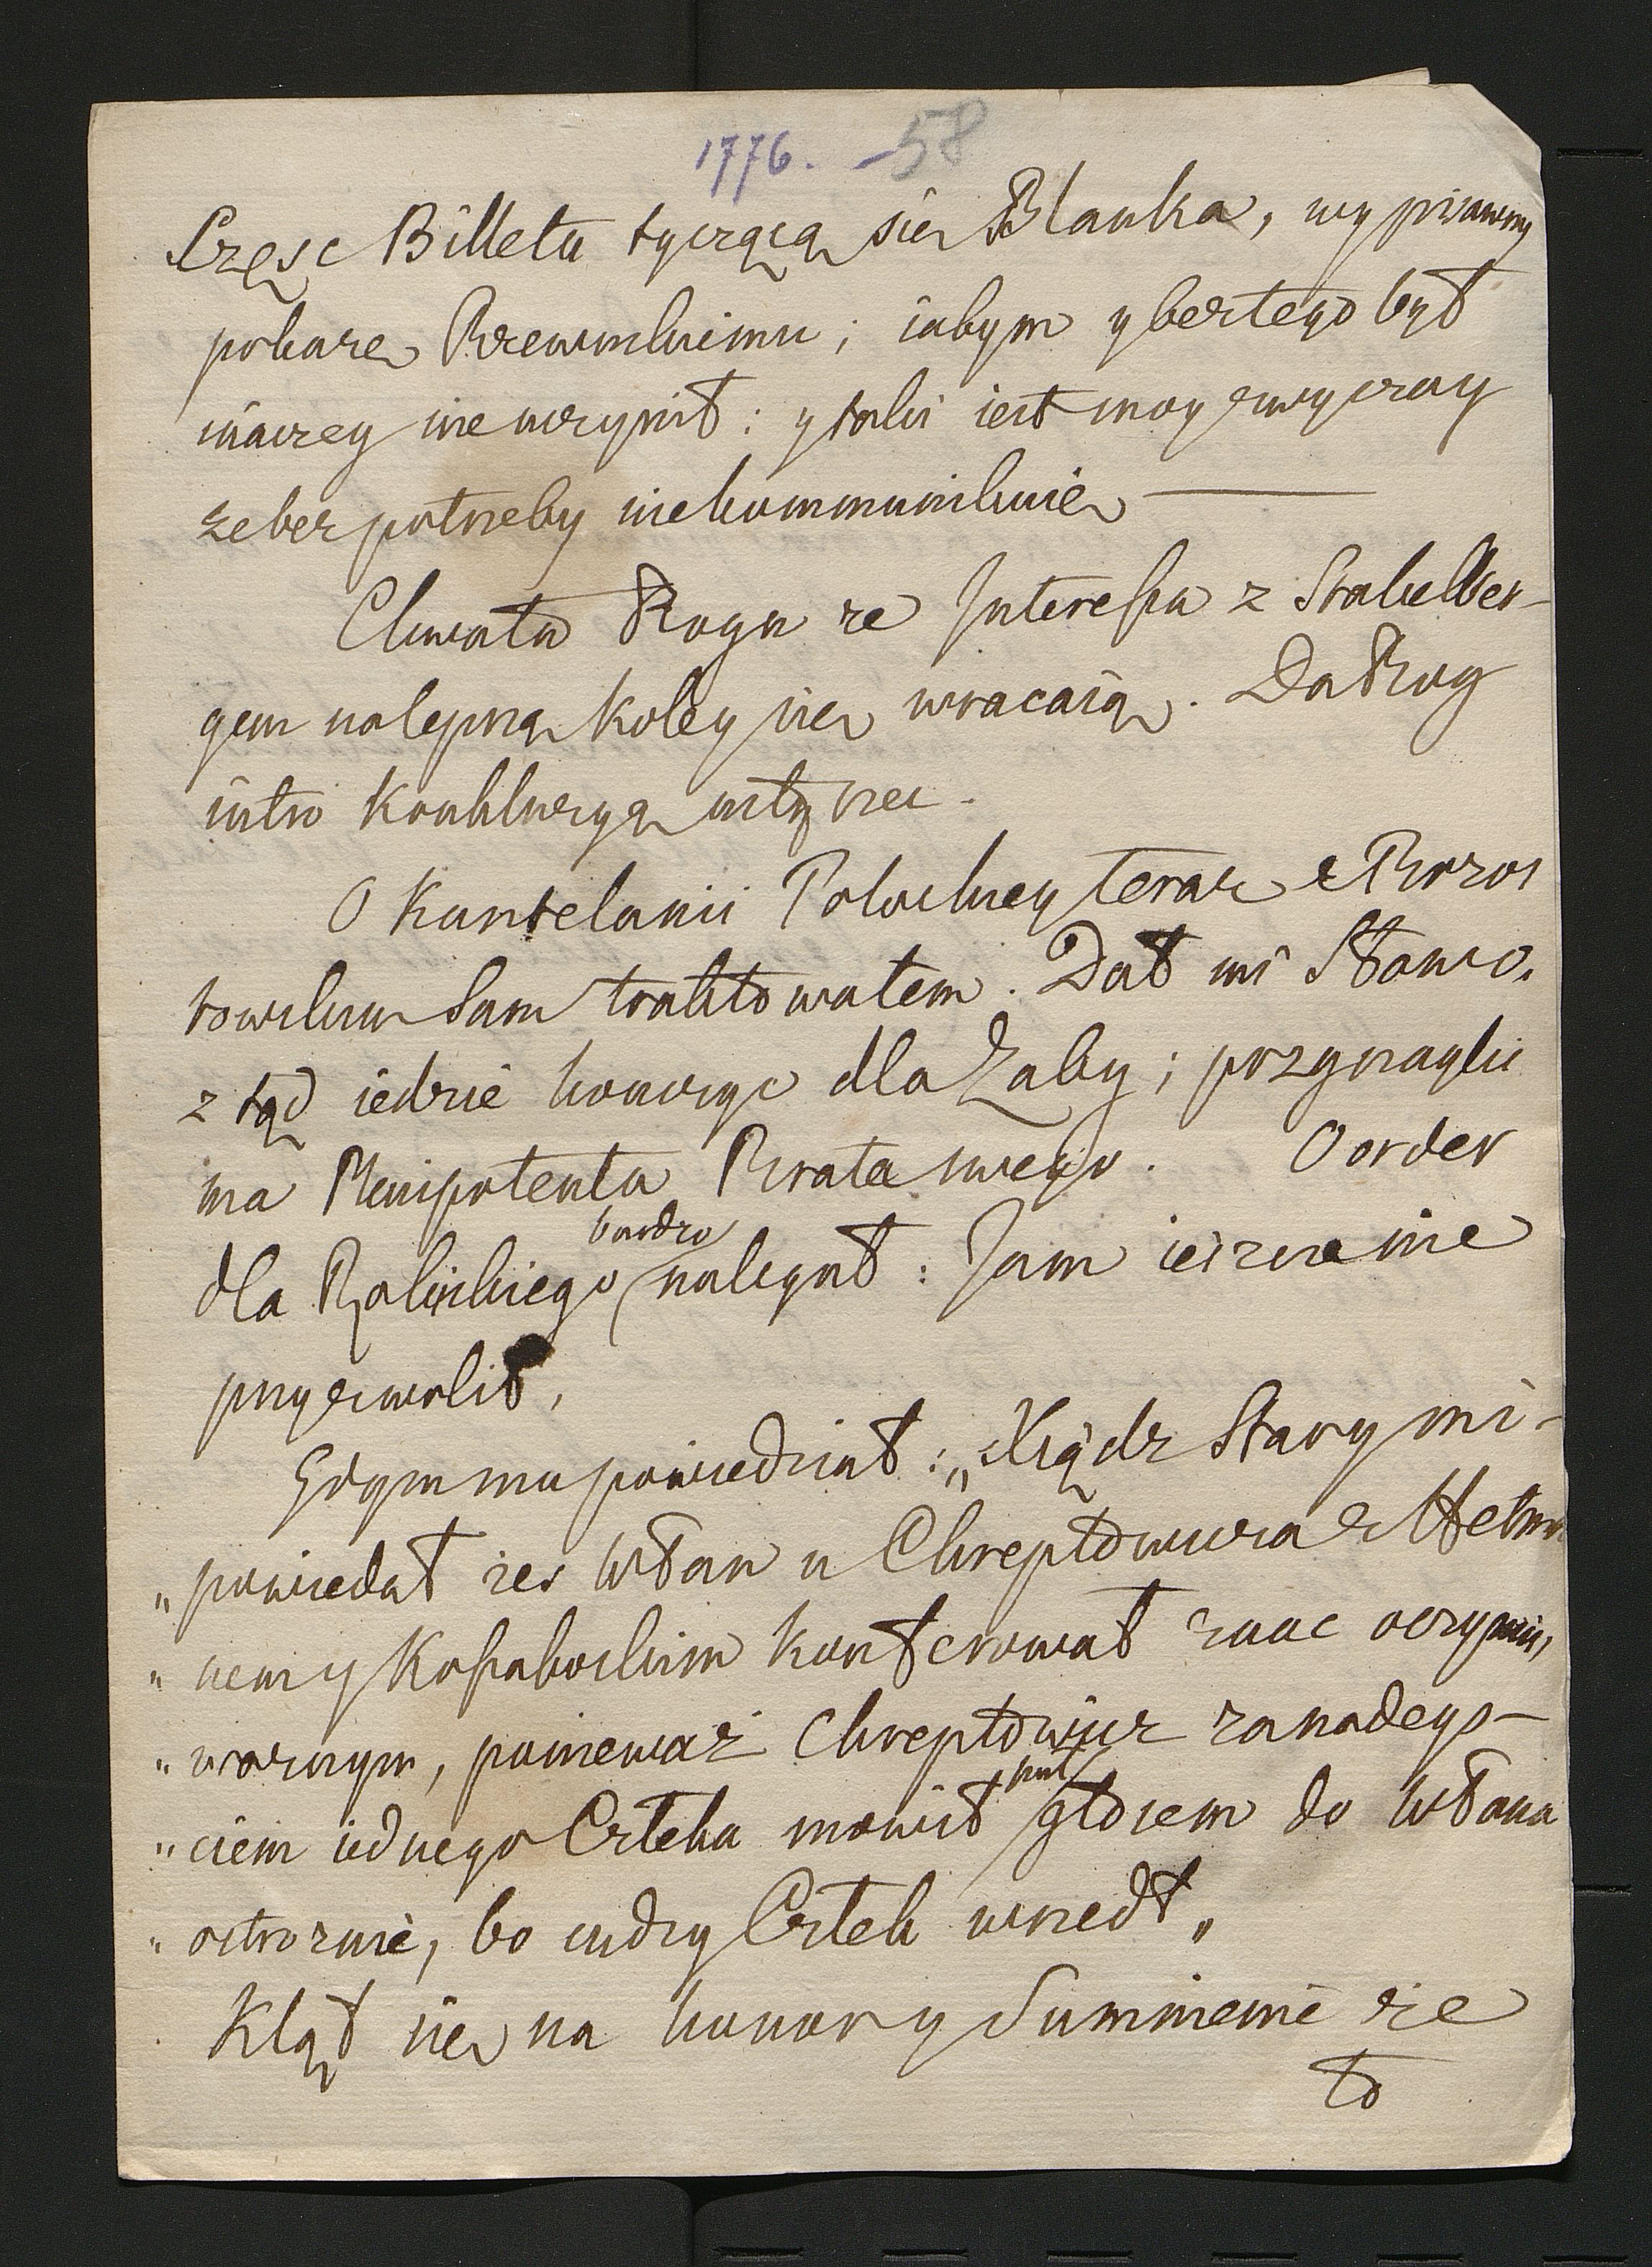 1776. -58
Częsc Billetu tycząca się Blanka, wypisawszy
pokazę Rzewuskiemu; iabym y bez tego był
inaczey nie uczynił: y taki iest moy zwyczay
ze bez potrzeby niekommunikuię
Chwała Bogu ze Interessa z Stakelber-
gem na lepszą koley się wracaią. Da Bog
iutro konkluzyą usłyszec.
O Kasztelanii Polockiey teraz z Brzos
towskim sam traktowałem. Dał mi Słowo.
z tąd iedzie konczyc dla Żaby; przynaglic
ma Plenipotenta Brata swego. O order
dla Rolickiego bardzo nalegał: Jam ieszcze nie
przyzwolił,
Gdym mu powiedział: „Xiądz Stary mi
„powiedał zes WPan u Chreptowicza z Hetma
„nem y Kossakowskim konferował znac o czyms
„waznym, poniewaz Chreptowicz za nadeys-
„ciem iednego Człeka mowił puł głosem do WPana
„ostroznie, bo cudzy Człek wszedł„
Klął się na honor y Sumnienie że
to